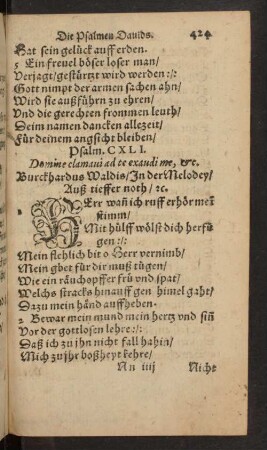 Die Psalmen Dauids. 424
Hat sein gelück auff erden.
5 Ein freuel böser loser man/
Verjagt/gestürtzt wird werden :/:
Gott nimpt der armen sachen ahn/
Wird sie außführn zu ehren/
Vnd die gerechten frommen leuth/
Deim namen dancken allezeit/
Für deinem angsicht bleiben/
Psalm. CXLI.
Domine clamaui ad te exaudi me, &c.
Burckhardus Waldis/In der Melodey/
Auß tieffer noth/ ꝛc.
HErr wañ ich ruff erhör meĩ
stimm/
Mit hülff wölst dich herfü
gen :/:
Mein flehlich bit o Herr vernimb/
Mein gbet für dir muß tügen/
Wie ein räuchopffer frü vnd spat/
Welchs stracks hinauff gen himel gaht/
Dazu mein händ auffheben.
2 Bewar mein mund mein hertz vnd siñ
Vor der gottlosen lehre :/:
Daß ich zu jhn nicht fall hahin/
Mich zu jhr boßheyt kehre/
Nn iiij Nicht